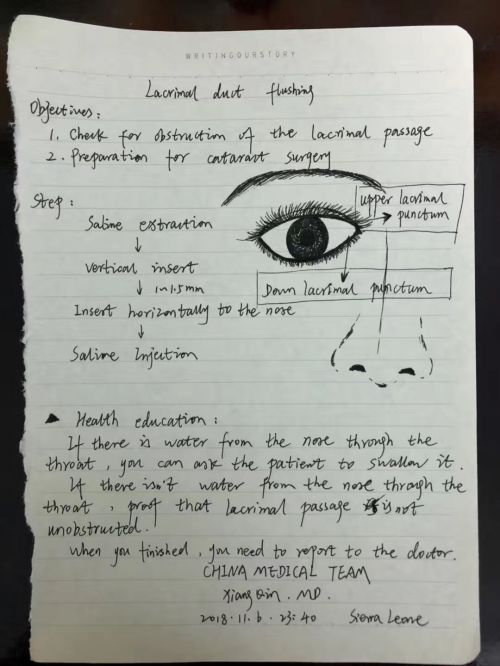 WRITINGOURSTORY
Lacrimal duct flushing
Objectives:
1. Check for obstruction of the lacrimal passage
2. Preparation for cataract surgery
Step:
Saline extraction
↓
Vertical insert
↓ 1~1.5mm
Insert horizontally to the nose
↓
Saline Injection
upper lacrimal
punctum
Down lacrimal punctum
▲ Health education:
If there is water from the nose through the
throat, you can ask the patient to swallow it.
If there isn't water from the nose through the
throat, proof that lacrimal passage is not
unobstructed.
When you finished, you need to report to the doctor.
CHINA MEDICAL TEAM
Xiang Qin. MD.
2018.11.6.23:40 Sierra Leone